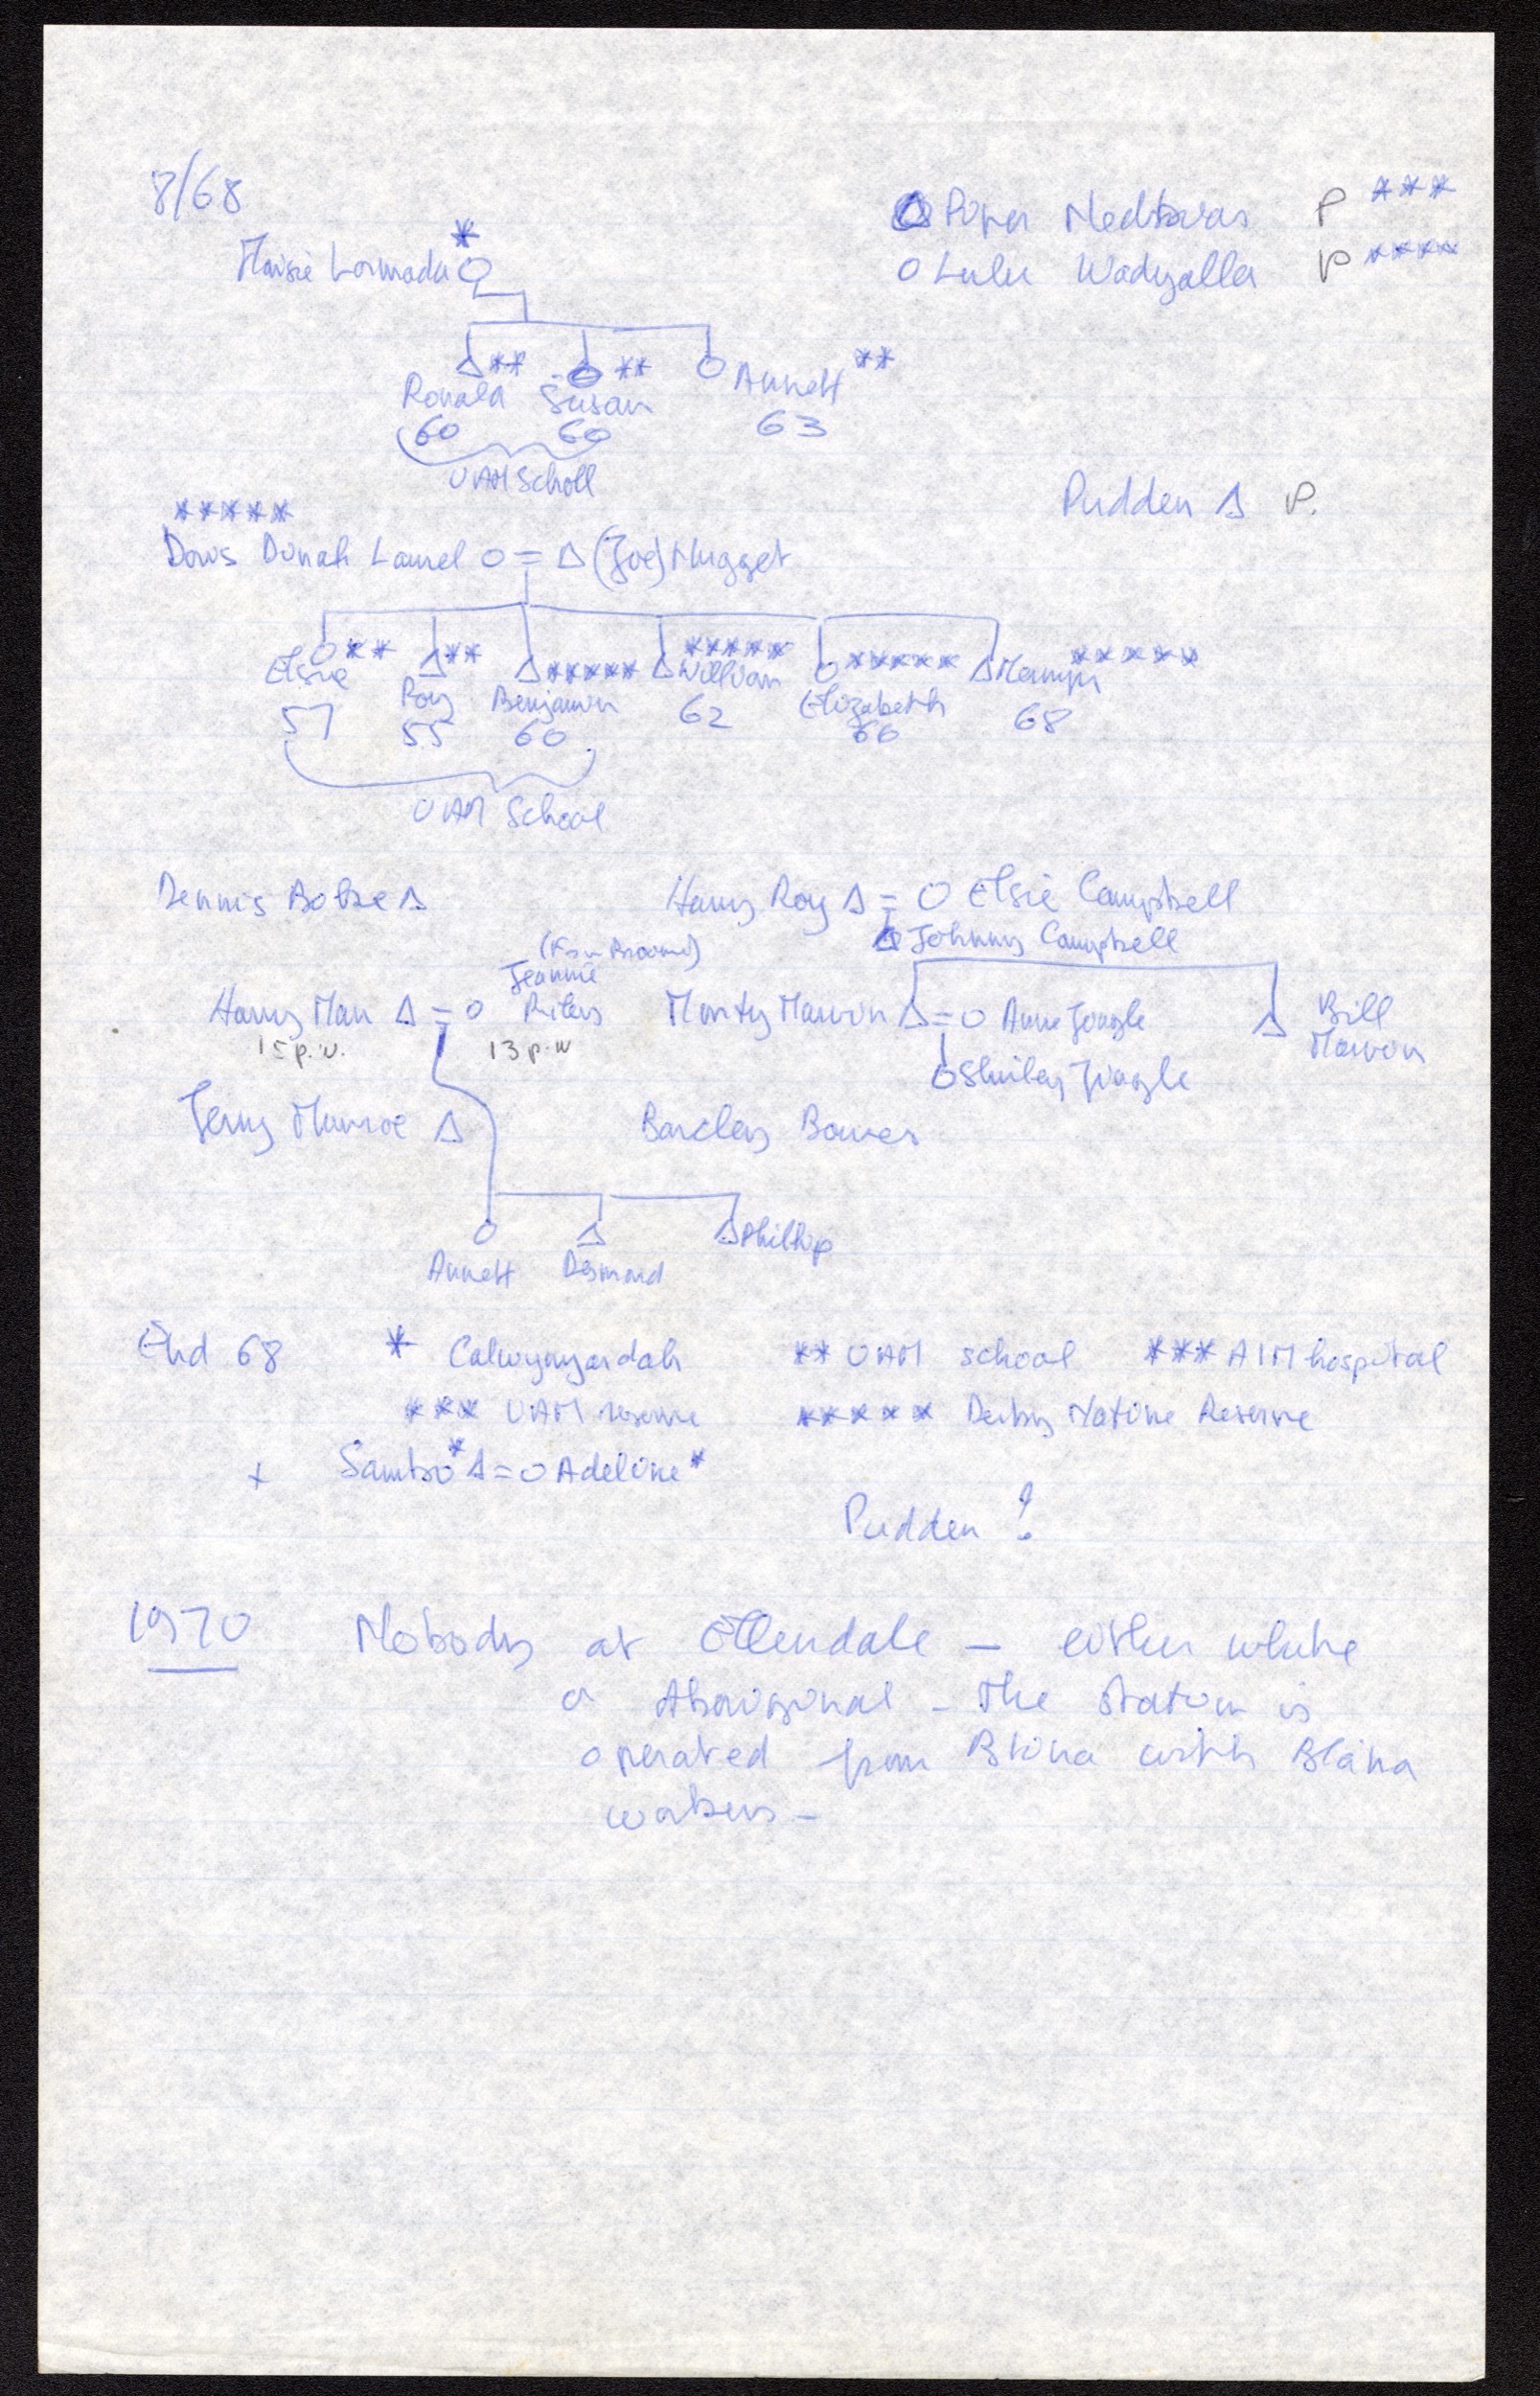 8/68
Maisie Lormada O
*
Δ Piper P ***
O Lulu Wadyalla P ****
Δ ** O ** O Annett **
Ronald Susan
60 60 63
UAM Scholl
Pudden Δ P.
*****
Doris Dinah Laurel O = Δ (Joe) Nugget
O ** Δ ** Δ ***** Δ ***** O ***** Δ *****
Elsie Roy Benjamin William Elizabeth
57 55 60 62 66 68
UAM School
Dennis Δ
Harry Roy Δ = O Elsie Campbell
Δ Johnny Campbell
(from Broome)
Jeannie
Harry Man Δ = O
15 p.w. 13 p.w
Monty Marion Δ = O Anne Jongle Δ Bill
Marion
O Shirley Jongle
Jerry Munroe Δ
Barclay Bowes
O Δ Δ Phillip
Annett Desmond
End 68 * Calwynyardah ** UAM school *** AIM hospital
*** UAM reserve ***** Derby Native Reserve
+ Sambo * Δ = O Adeline *
Pudden ?
1970 Nobody at Ellendale – either white
or Aboriginal – The station is
operated from Blina with Blina
workers –